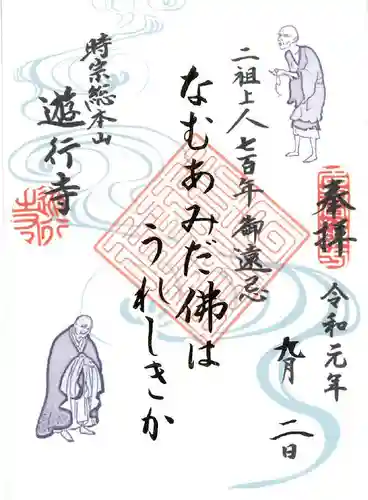 奉拝
令和元年
九月
二日
二祖上人七百年御遠忌
なむあみだ佛は
うれしきか
時宗総本山
遊行寺